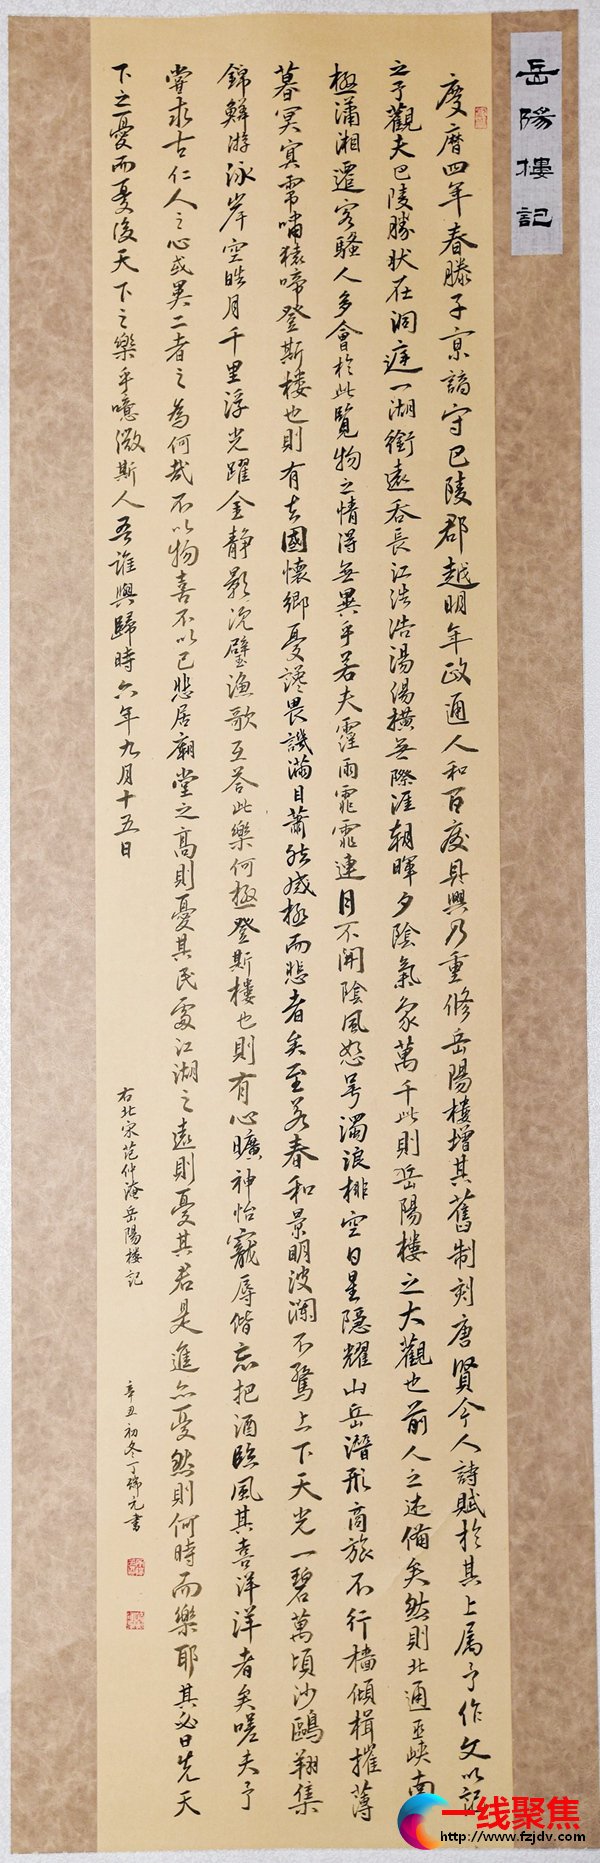 岳陽樓記
慶曆四年春滕子京謫守巴陵郡越明年政通人和百度具興乃重修岳陽樓增其舊制刻唐賢今人詩賦於其上属予作文以記
之予觀夫巴陵勝狀在洞庭一湖銜遠吞長江浩浩湯湯橫无際涯朝暉夕陰氣象萬千此則岳陽樓之大觀也前人之述備矣然則北通巫峽南
極瀟湘遷客騷人多會於此覽物之情得无異乎若夫霪雨霏霏連月不開陰風怒号濁浪排空日星隱耀山岳潛形商旅不行檣傾楫摧薄
暮冥冥虎嘯猿啼登斯樓也則有去國懷鄉憂讒畏譏滿目蕭然感極而悲者矣至若春和景明波瀾不驚上下天光一碧萬頃沙鷗翔集
錦鱗游泳岸空皓月千里浮光躍金靜影沉璧漁歌互答此樂何極登斯樓也則有心曠神怡寵辱偕忘把酒臨風其喜洋洋者矣嗟夫予
嘗求古仁人之心或異二者之為何哉不以物喜不以己悲居廟堂之高則憂其民處江湖之遠則憂其君是進亦憂然則何時而樂耶其必曰先天
下之憂而憂後天下之樂乎噫微斯人吾誰與歸時六年九月十五日
右北宋范仲淹岳陽樓記
辛丑初冬丁瑞元書
一线聚焦
http://www.fzjdv.com